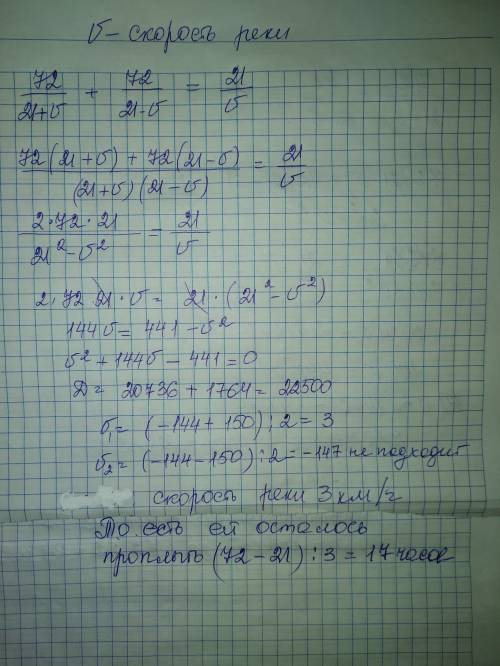 v – скорость реки
72/(21+v) + 72/(21-v) = 21/v
(72(21+v) + 72(21-v))/((21+v)(21-v)) = 21/v
(2·72·21)/(21²-v²) = 21/v
2·72·21·v = 21·(21²-v²)
144v = 441 - v²
v² + 144v - 441 = 0
D = 20736 + 1764 = 22500
v₁ = (-144+150):2 = 3
v₂ = (-144-150):2 = -147 не подходит
скорость реки 3 км/г
То есть ей осталось
проплыть (72-21):3 = 17 часов